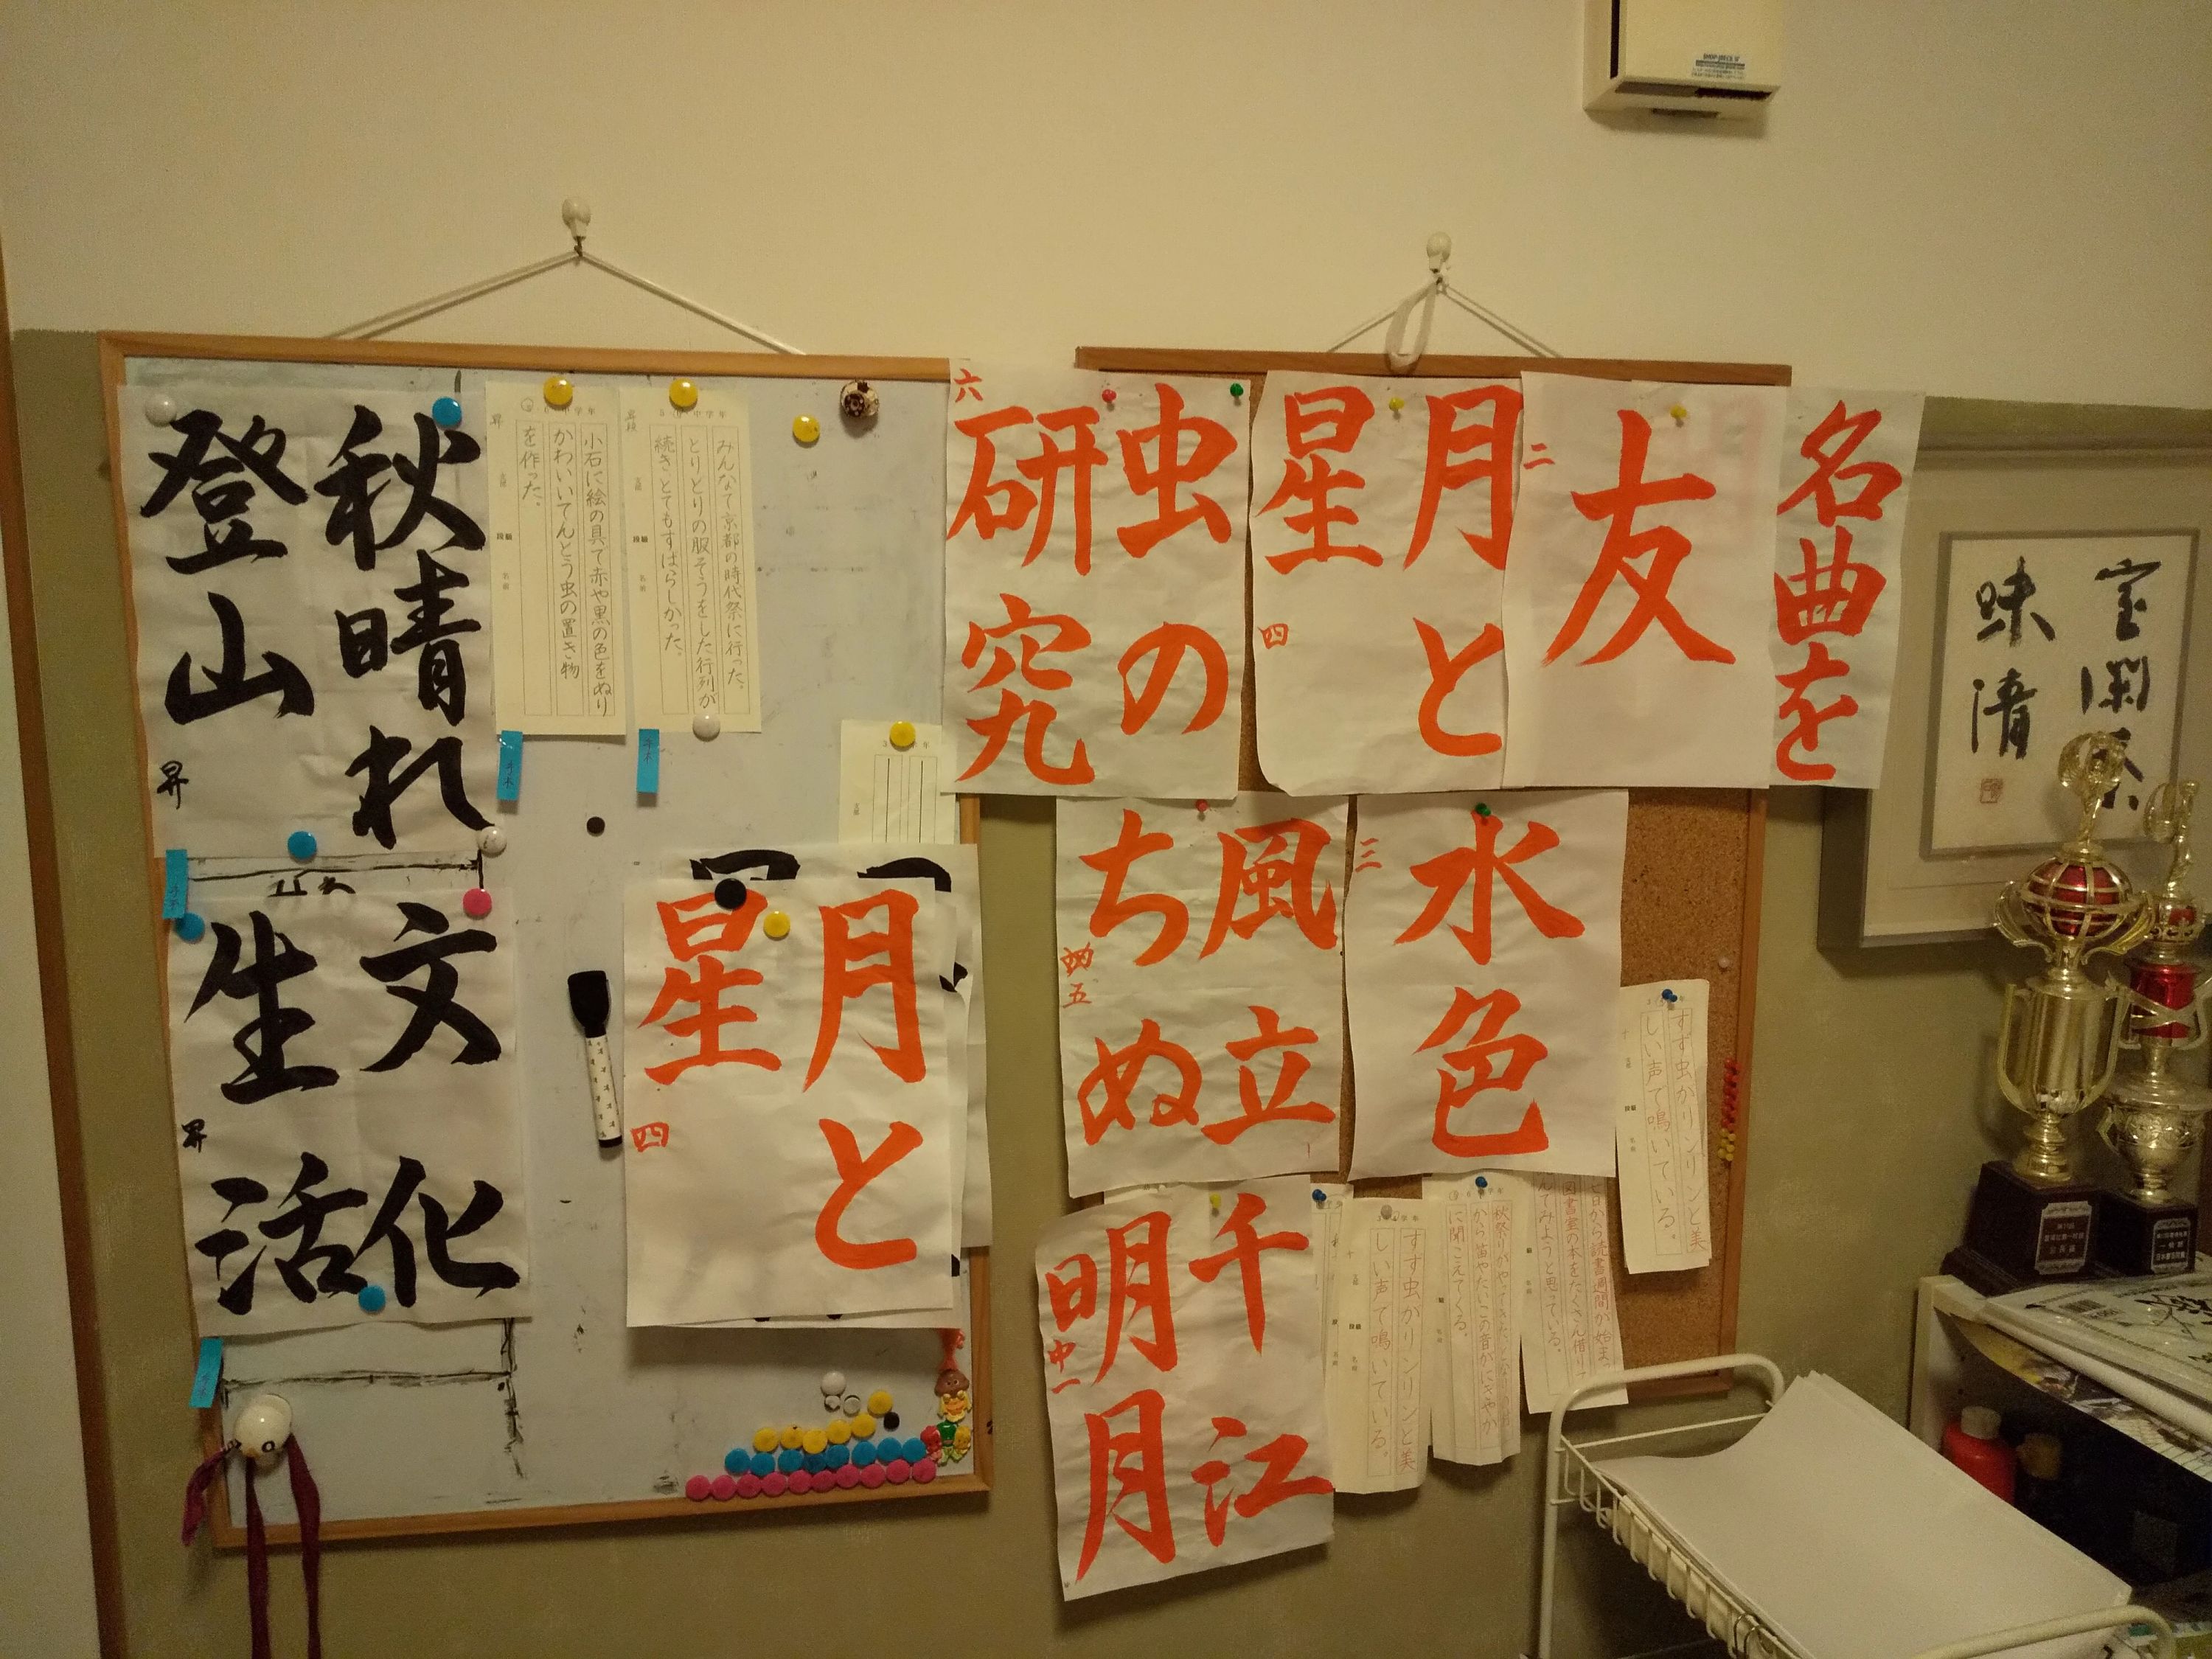 秋晴れ
登山
昇
文化
生活
昇
小石に絵の具で赤や黒の色をぬり
かわいいてんとう虫の置き物
を作った。
みんなで京都の時代祭に行った。
とりどりの服そうをした行列が
続きとてもすばらしかった。
月と
星
四
六
虫の
研究
月と
星
四
二
友
名曲を
風立
ちぬ
五
三
水色
千江
明月
中一
すず虫がリンリンと美
しい声で鳴いている。
すず虫がリンリンと美
しい声で鳴いている。
から笛やたいこの音がにぎやか
に聞こえてくる。
図書室の本をたくさん借りて
んでみようと思っている。
味清